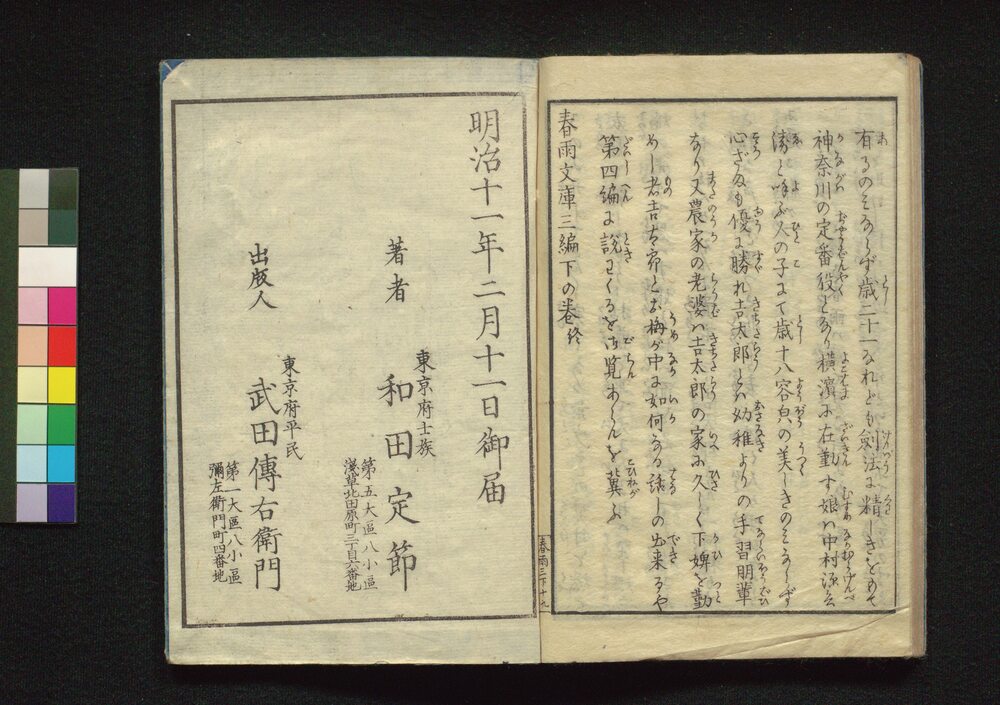 有るのみならず歳二十一なれども剣法に精しきをもて
神奈川の定番役となり横濱に在勤す娘ハ中村源兵
衛と呼ぶ人の子にて歳十八容皃の美しきのミならず
心ざまも優に勝れ吉太郎とハ幼稚よりの手習朋輩
なり又農家の老婆ハ吉太郎の家に久しく下婢を勤
めし者吉太郎とお梅が中に如何なる話しの出来るや
第四編に説わくるを御覧あらんを冀ふ
春雨文庫三編下の巻終
春雨三下十九
明治十一年二月十一日御届
著者
東京府士族
和田定節
第五大區八小區
淺草北田原町三丁目六番地
出版人
東京府平民
武田傳右衛門
第一大區八小區
彌左衛門町四番地